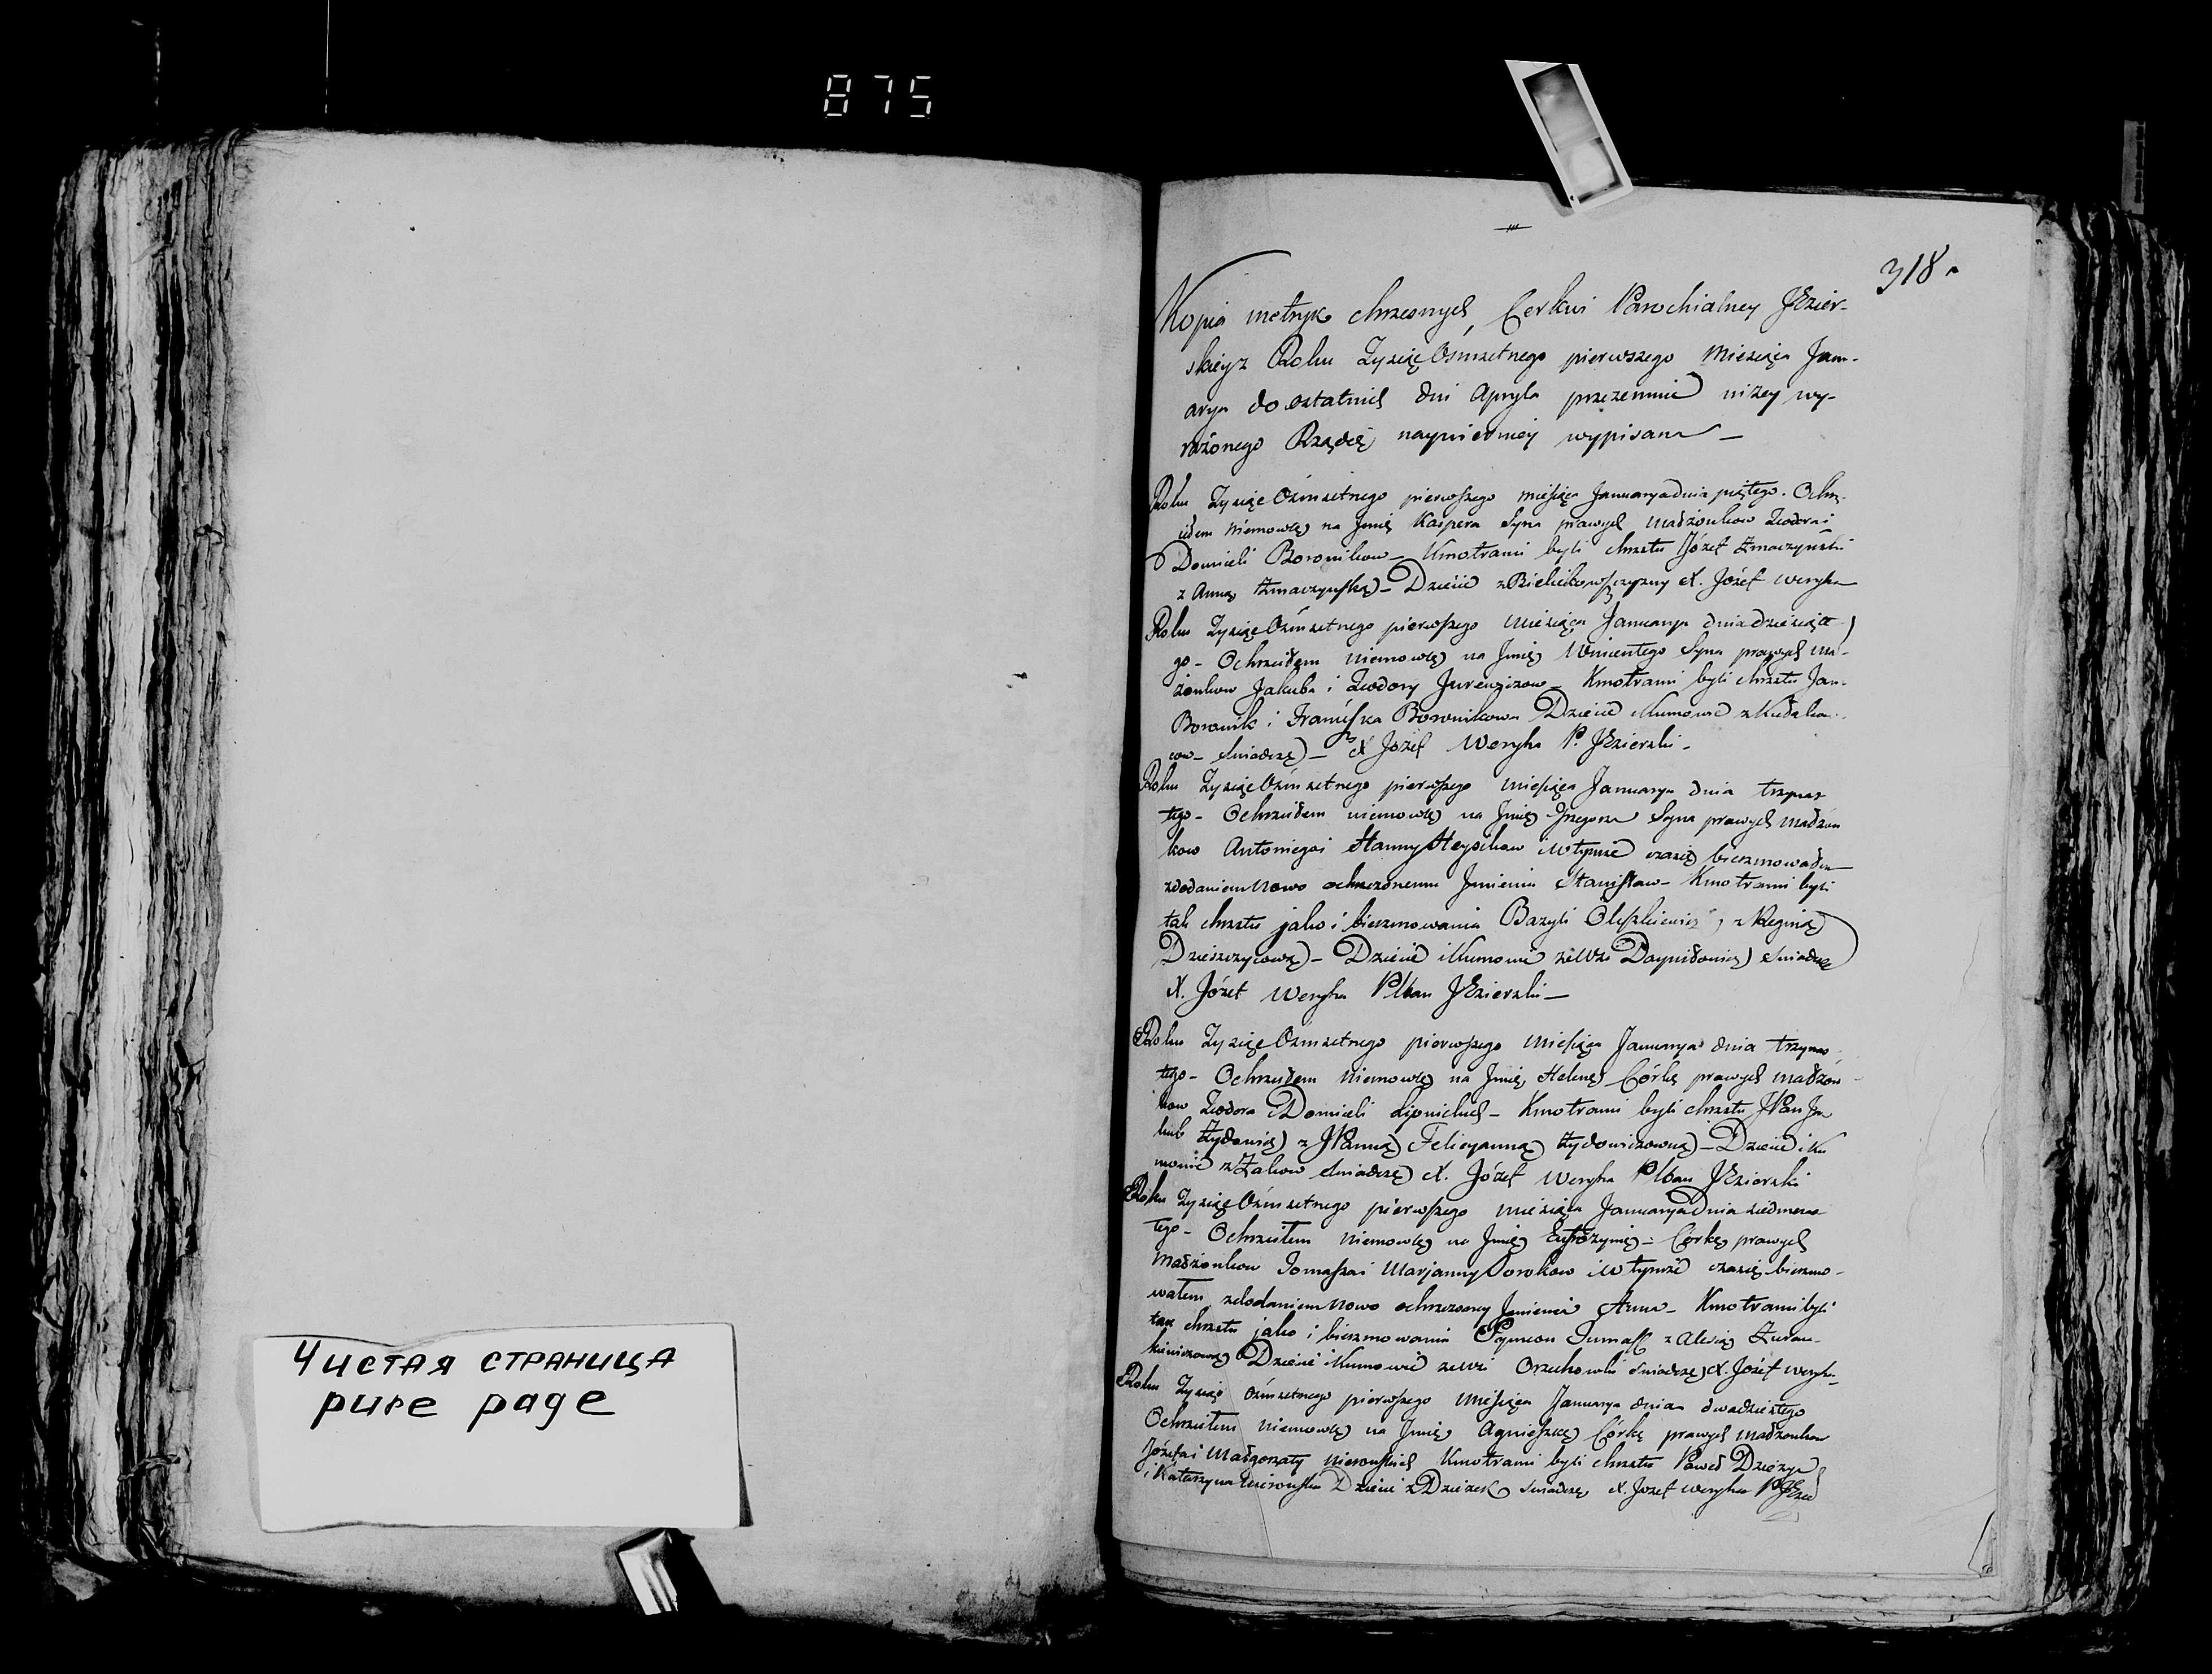 875
318
Kopia metryk chrzesnych Cerkwi Parochialney JEzier-
skiey z Roku Tysiąc Osmsetnego pierwszego Miesiąca Janu-
arya do ostatnich dni Apryla przezemnie niżey wy-
rażonego Rządcę naywierniey wypisana
Roku Tysiąc Osmsetnego pierwszego miesiąca January dnia piątego. Ochrz-
ciłem niemowlę na Jmię Kaspera Syna prawych małżonkow Teodora i
Domiceli Borownikow - Kmotrami byli chrztu Józef
z Anną - Dziecie z X. Józef Weryha
Roku Tysiąc Osmsetnego pierwszego miesiąca Januarya dnia dziesiąte-
go - Ochrzciłem niemowlę na Jmię Wincentego Syna prawych ma-
żonkow Jakuba i Teodory - Kmotrami byli chrztu Jan
Borownik i Franciszka Borownikowa Dziecie Kumowie z
- Świadczę - X Józef Weryha P. JEzierski -
Roku Tysiąc Osmsetnego pierwszego miesiąca Januarya dnia trzynas
tego - Ochrzciłem niemowlę na Jmię Grzegorza Syna prawych małżon
kow Antoniego i Hanny i w tymże czasie bierzmowałem
z dodaniem nowo ochrzczonemu Jmienia Stanisław - Kmotrami byli
tak chrztu jako i bierzmowania Bazyli z Reginą
- Dziecie i Kumowie ze Wsi Świadczę
X. Józef Weryha Plban JEzierski -
Roku Tysiąc Osmsetnego pierwszego miesiąca Januarya dnia trzynas
tego - Ochrzciłem niemowlę na Jmię Helenę Córkę prawych małżon
kow Teodora Domiceli Lipnickich - Kmotrami byli chrztu JPan
z JPanną Felicyanną - Dziecie i Ku
mowie z Świadczę X. Józef Weryha Plban JEzierski
Roku Tysiąc Osmsetnego pierwszego miesiąca Januarya Dnia siedmnas
tego - Ochrzciłem niemowlę na Jmię Eufrozynię - Córkę prawych
małżonkow Tomasza i Marjanny Sorokow i w tymże czasie bierzmo-
wałem z dodaniem nowo ochrzczoney Jmienia Anna - Kmotrami byli
tak chrztu jako i bierzmowania z
Dziecie i Kumowie ze Wsi Orzechowki Świadczę X. Józef Weryha
Roku Tysiąc Osmsetnego pierwszego Miesiąca Januarya dnia dwudziestego
Ochrzciłem niemowlę na Jmię Agnieszkę Córkę prawych małżonkow
Józefa i Małgorzaty Kmotrami byli chrztu Paweł
i Katarzyna Dziecie z Świadczę X. Jozef Weryha
Чистая страница
pure page